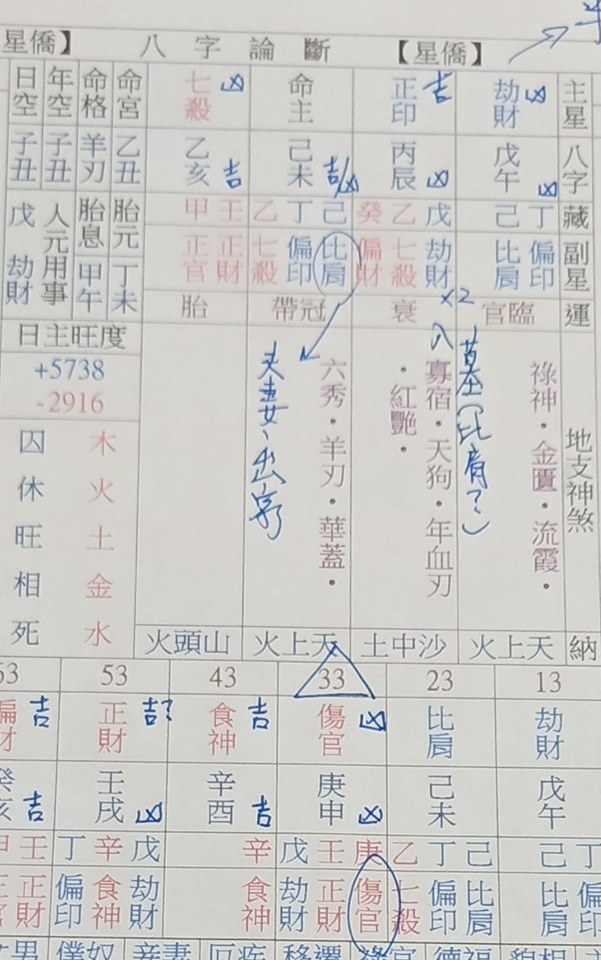 星僑】 八字論斷 【星僑】
主星 劫財 凶 正印 吉 命主 七殺 凶 命宮 命格 年空 日空
八字 戊午 凶 丙辰 凶 己未 吉/凶 乙亥 吉 乙丑 羊刃 子丑 子丑
藏 丁 己 戊 乙 癸 己 丁 乙 壬 甲 胎元 胎息 人元用事 戊 劫財
副星 偏印 比肩 劫財 七殺 偏財 比肩 偏印 七殺 正財 正官 丁未 甲午
運 臨官 衰 冠帶 胎
x2
日主旺度
+5738
-2916
木 囚
火 休
土 旺
金 相
水 死
地支神煞
祿神・金匱・流霞・
寡宿・天狗・年血刃
・紅艷・
六秀・羊刃・華蓋・
入墓(比肩?)
夫妻、出家
納 天上火 沙中土 天上火 山頭火
13 23 33 43 53 63
劫財 比肩 傷官 凶 食神 吉 正財 吉? 偏財 吉
戊午 己未 庚申 凶 辛酉 吉 壬戌 凶 癸亥 吉
丁 己 己 丁 乙 庚 壬 戊 辛 戊 辛 丁 壬 甲
偏印 比肩 比肩 偏印 七殺 傷官 正財 劫財 食神 劫財 食神 偏印 正財 正官
相貌 福德 官祿 遷移 疾厄 妻妾 奴僕 男女